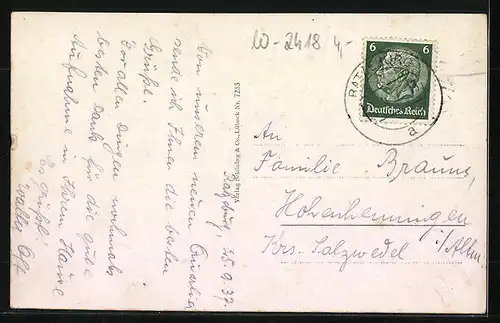 W-2418 4,-
6 6
Deutsches Reich
RATZ
Verlag Schöning & Co., Lübeck Nr. 7255
Ratzeburg, 25.9.37.
Von unserem neuen Quartier
sende ich Ihnen die besten
Grüße.
Vor allen Dingen nochmals
besten Dank für die gute
Aufnahme in Ihrem Hause
Es grüßt!
Walter
An
Familie Brauns,
Hohenhenningen
Krs. Salzwedel i/Altm.